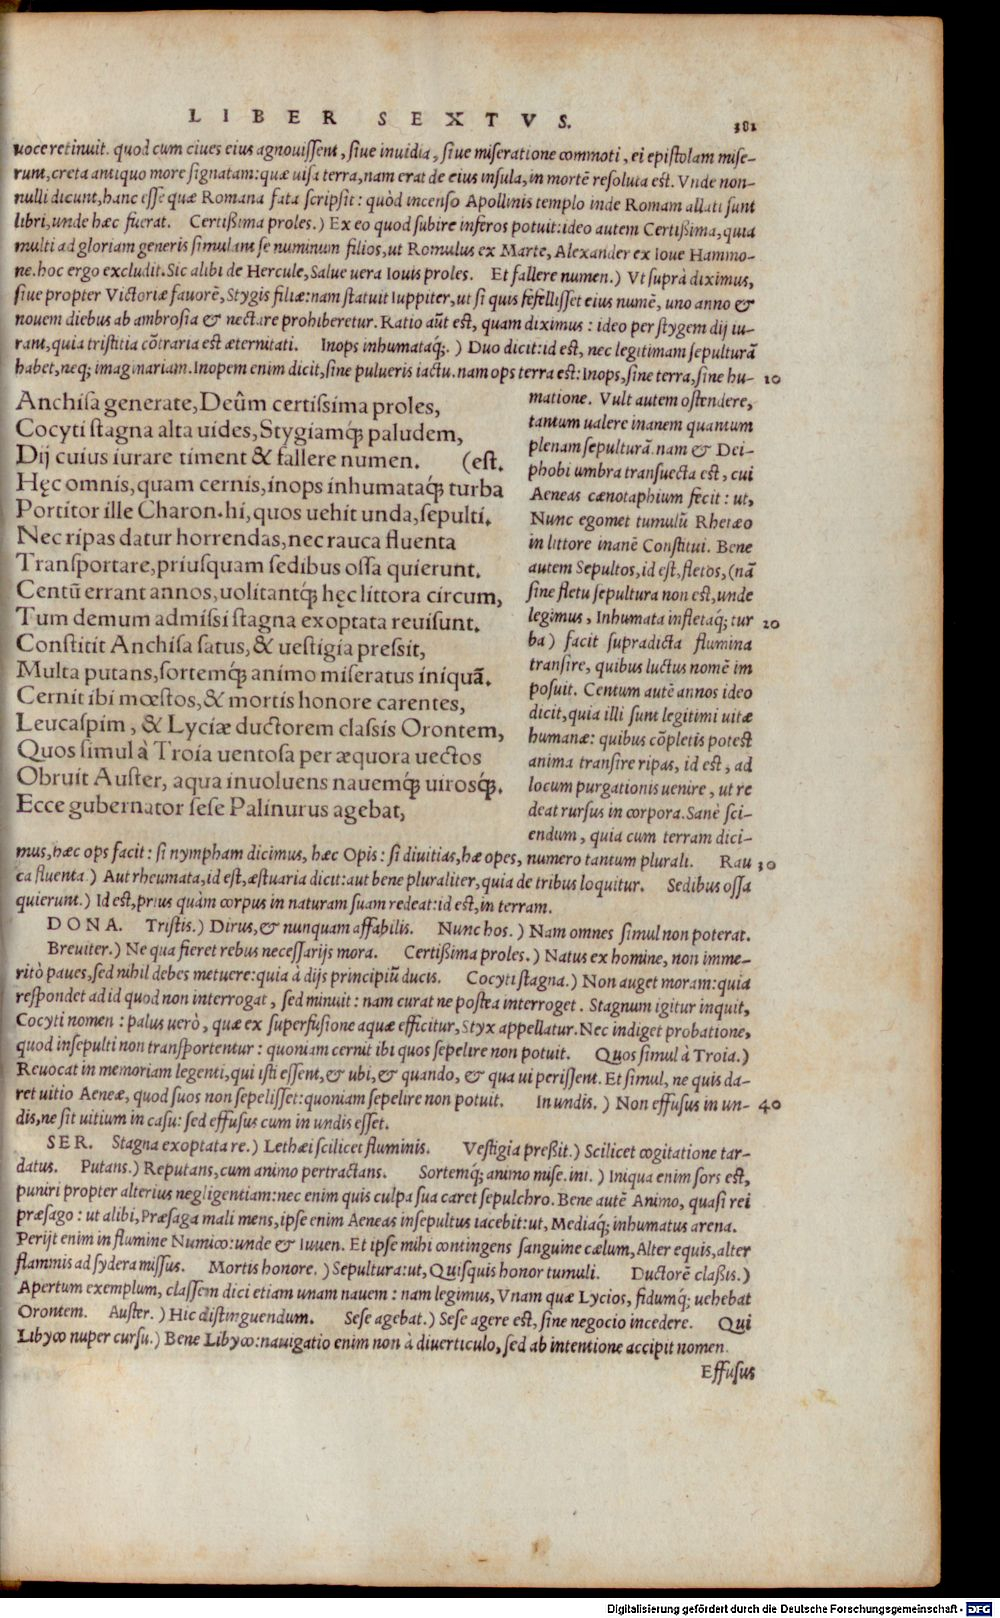 LIBER SEXTVS. 381
uoce retinuit. quod cum ciues eius agnouissent, siue inuidia, siue miseratione commoti, ei epistolam mise-
runt, creta antiquo more signatam: quæ uisa terra, nam erat de eius insula, in mortē resoluta est. Vnde non-
nulli dicunt, hanc esse quæ Romana fata scripsit: quòd incenso Apollinis templo inde Romam allati sunt
libri, unde hæc fuerat. Certißima proles.) Ex eo quod subire inferos potuit: ideo autem Certißima, quia
multi ad gloriam generis simulant se numinum filios, ut Romulus ex Marte, Alexander ex Ioue Hammo-
ne. hoc ergo excludit. Sic alibi de Hercule, Salue uera Iouis proles. Et fallere numen.) Vt suprà diximus,
siue propter Victoriæ fauorē, Stygis filiæ: nam statuit Iuppiter, ut si quis fefellisset eius numē, uno anno &
nouem diebus ab ambrosia & nectare prohiberetur. Ratio aūt est, quam diximus: ideo per stygem dij iu-
rant, quia tristitia cōtraria est æternitati. Inops inhumataq́;.) Duo dicit: id est, nec legitimam sepulturā
habet, neq; imaginariam. Inopem enim dicit, sine pulueris iactu. nam ops terra est: Inops, sine terra, sine hu- 10
Anchisa generate, Deûm certissima proles,
Cocyti stagna alta uides, Stygiamq́; paludem,
Dij cuius iurare timent & fallere numen. (est.
Hęc omnis, quam cernis, inops inhumataq́; turba
Portitor ille Charon. hi, quos uehit unda, sepulti.
Nec ripas datur horrendas, nec rauca fluenta
Transportare, priusquam sedibus ossa quierunt.
Centū errant annos, uolitantq́; hęc littora circum,
Tum demum admissi stagna exoptata reuisunt.
Constitit Anchisa satus, & uestigia pressit,
Multa putans, sortemq́; animo miseratus iniquā.
Cernit ibi mœstos, & mortis honore carentes,
Leucaspim, & Lyciæ ductorem classis Orontem,
Quos simul à Troia uentosa per æquora uectos
Obruit Auster, aqua inuoluens nauemq́; uirosq́;.
Ecce gubernator sese Palinurus agebat,
matione. Vult autem ostendere,
tantum ualere inanem quantum
plenam sepulturā. nam & Dei-
phobi umbra transuecta est, cui
Aeneas cænotaphium fecit: ut,
Nunc egomet tumulū Rhetæo
in littore inanē Constitui. Bene
autem Sepultos, id est, fletos, (nā
sine fletu sepultura non est, unde
legimus, Inhumata infletaq́; tur 20
ba) facit supradicta flumina
transire, quibus luctus nomē im
posuit. Centum autē annos ideo
dicit, quia illi sunt legitimi uitæ
humanæ: quibus cōpletis potest
anima transire ripas, id est, ad
locum purgationis uenire, ut re
deat rursus in corpora. Sanè sci-
endum, quia cum terram dici-
mus, hæc ops facit: si nympham dicimus, hæc Opis: si diuitias, hæ opes, numero tantum plurali. Rau 30
ca fluenta.) Aut rheumata, id est, æstuaria dicit: aut bene pluraliter, quia de tribus loquitur. Sedibus ossa
quierunt.) Id est, prius quàm corpus in naturam suam redeat: id est, in terram.
DONA. Tristis.) Dirus, & nunquam affabilis. Nunc hos.) Nam omnes simul non poterat.
Breuiter.) Ne qua fieret rebus necessarijs mora. Certißima proles.) Natus ex homine, non imme-
ritò paues, sed nihil debes metuere: quia à dijs principiū ducis. Cocyti stagna.) Non auget moram: quia
respondet ad id quod non interrogat, sed minuit: nam curat ne postea interroget. Stagnum igitur inquit,
Cocyti nomen: palus uerò, quæ ex superfusione aquæ efficitur, Styx appellatur. Nec indiget probatione,
quod insepulti non transportentur: quoniam cernit ibi quos sepelire non potuit. Quos simul à Troia.)
Reuocat in memoriam legenti, qui isti essent, & ubi, & quando, & qua ui perissent. Et simul, ne quis da-
ret uitio Aeneæ, quod suos non sepelisset: quoniam sepelire non potuit. In undis.) Non effusus in un- 40
dis, ne sit uitium in casu: sed effusus cum in undis esset.
SER. Stagna exoptata re.) Lethæi scilicet fluminis. Vestigia preßit.) Scilicet cogitatione tar-
datus. Putans.) Reputans, cum animo pertractans. Sortemq́; animo mise. ini.) Iniqua enim sors est,
puniri propter alterius negligentiam: nec enim quis culpa sua caret sepulchro. Bene autē Animo, quasi rei
præsago: ut alibi, Præsaga mali mens, ipse enim Aeneas insepultus iacebit: ut, Mediaq́; inhumatus arena.
Perijt enim in flumine Numico: unde & Iuuen. Et ipse mihi contingens sanguine cælum, Alter equis, alter
flammis ad sydera missus. Mortis honore.) Sepultura: ut, Quisquis honor tumuli. Ductorē claßis.)
Apertum exemplum, classem dici etiam unam nauem: nam legimus, Vnam quæ Lycios, fidumq́; uehebat
Orontem. Auster.) Hic distinguendum. Sese agebat.) Sese agere est, sine negocio incedere. Qui
Libyco nuper cursu.) Bene Libyco: nauigatio enim non à diuerticulo, sed ab intentione accipit nomen.
Effusus
Digitalisierung gefördert durch die Deutsche Forschungsgemeinschaft - DFG